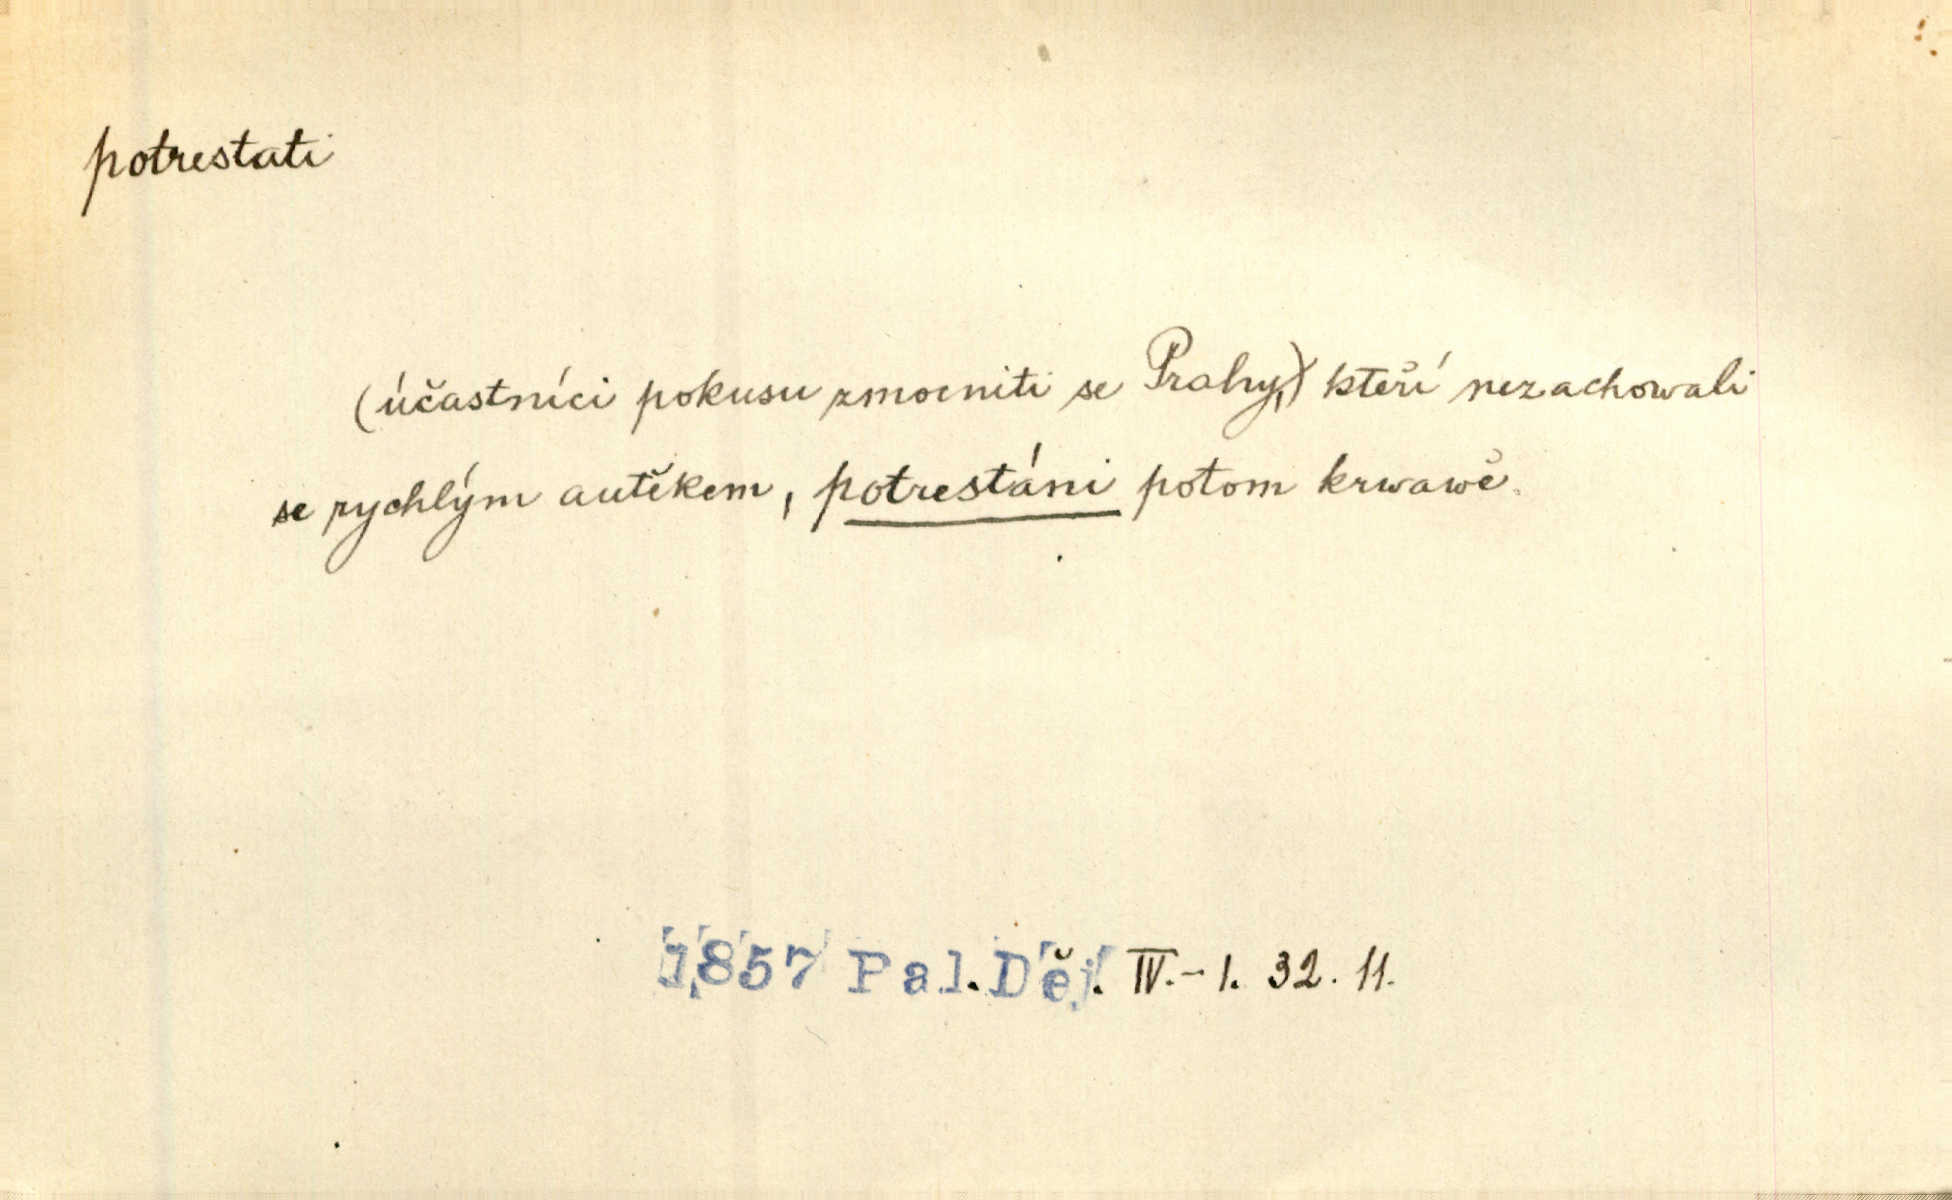 potrestati
(účastníci pokusu zmocniti se Prahy,) kteří nezachowali
se rychlým autěkem, potrestáni potom krwawě.
1857 Pal. Děj. IV.-1. 32. 11.